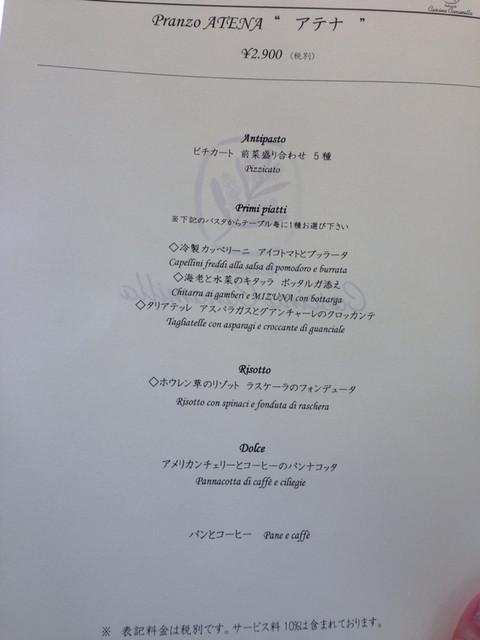 Cucina Cucamilla
Pranzo ATENA “ アテナ ”
¥2.900 (税別)
Antipasto
ピチカート 前菜盛り合わせ 5種
Pizzicato
Primi piatti
※下記のパスタからテーブル毎に1種お選び下さい
◇冷製カッペリーニ アイコトマトとブッラータ
Capellini freddi alla salsa di pomodoro e burrata
◇海老と水菜のキタッラ ボッタルガ添え
Chitarra ai gamberi e MIZUNA con bottarga
◇タリアテッレ アスパラガスとグアンチャーレのクロッカンテ
Tagliatelle con asparagi e croccante di guanciale
Risotto
◇ホウレン草のリゾット ラスケーラのフォンデュータ
Risotto con spinaci e fonduta di raschera
Dolce
アメリカンチェリーとコーヒーのパンナコッタ
Pannacotta di caffè e ciliegie
パンとコーヒー Pane e caffè
※ 表記料金は税別です。サービス料10%は含まれております。